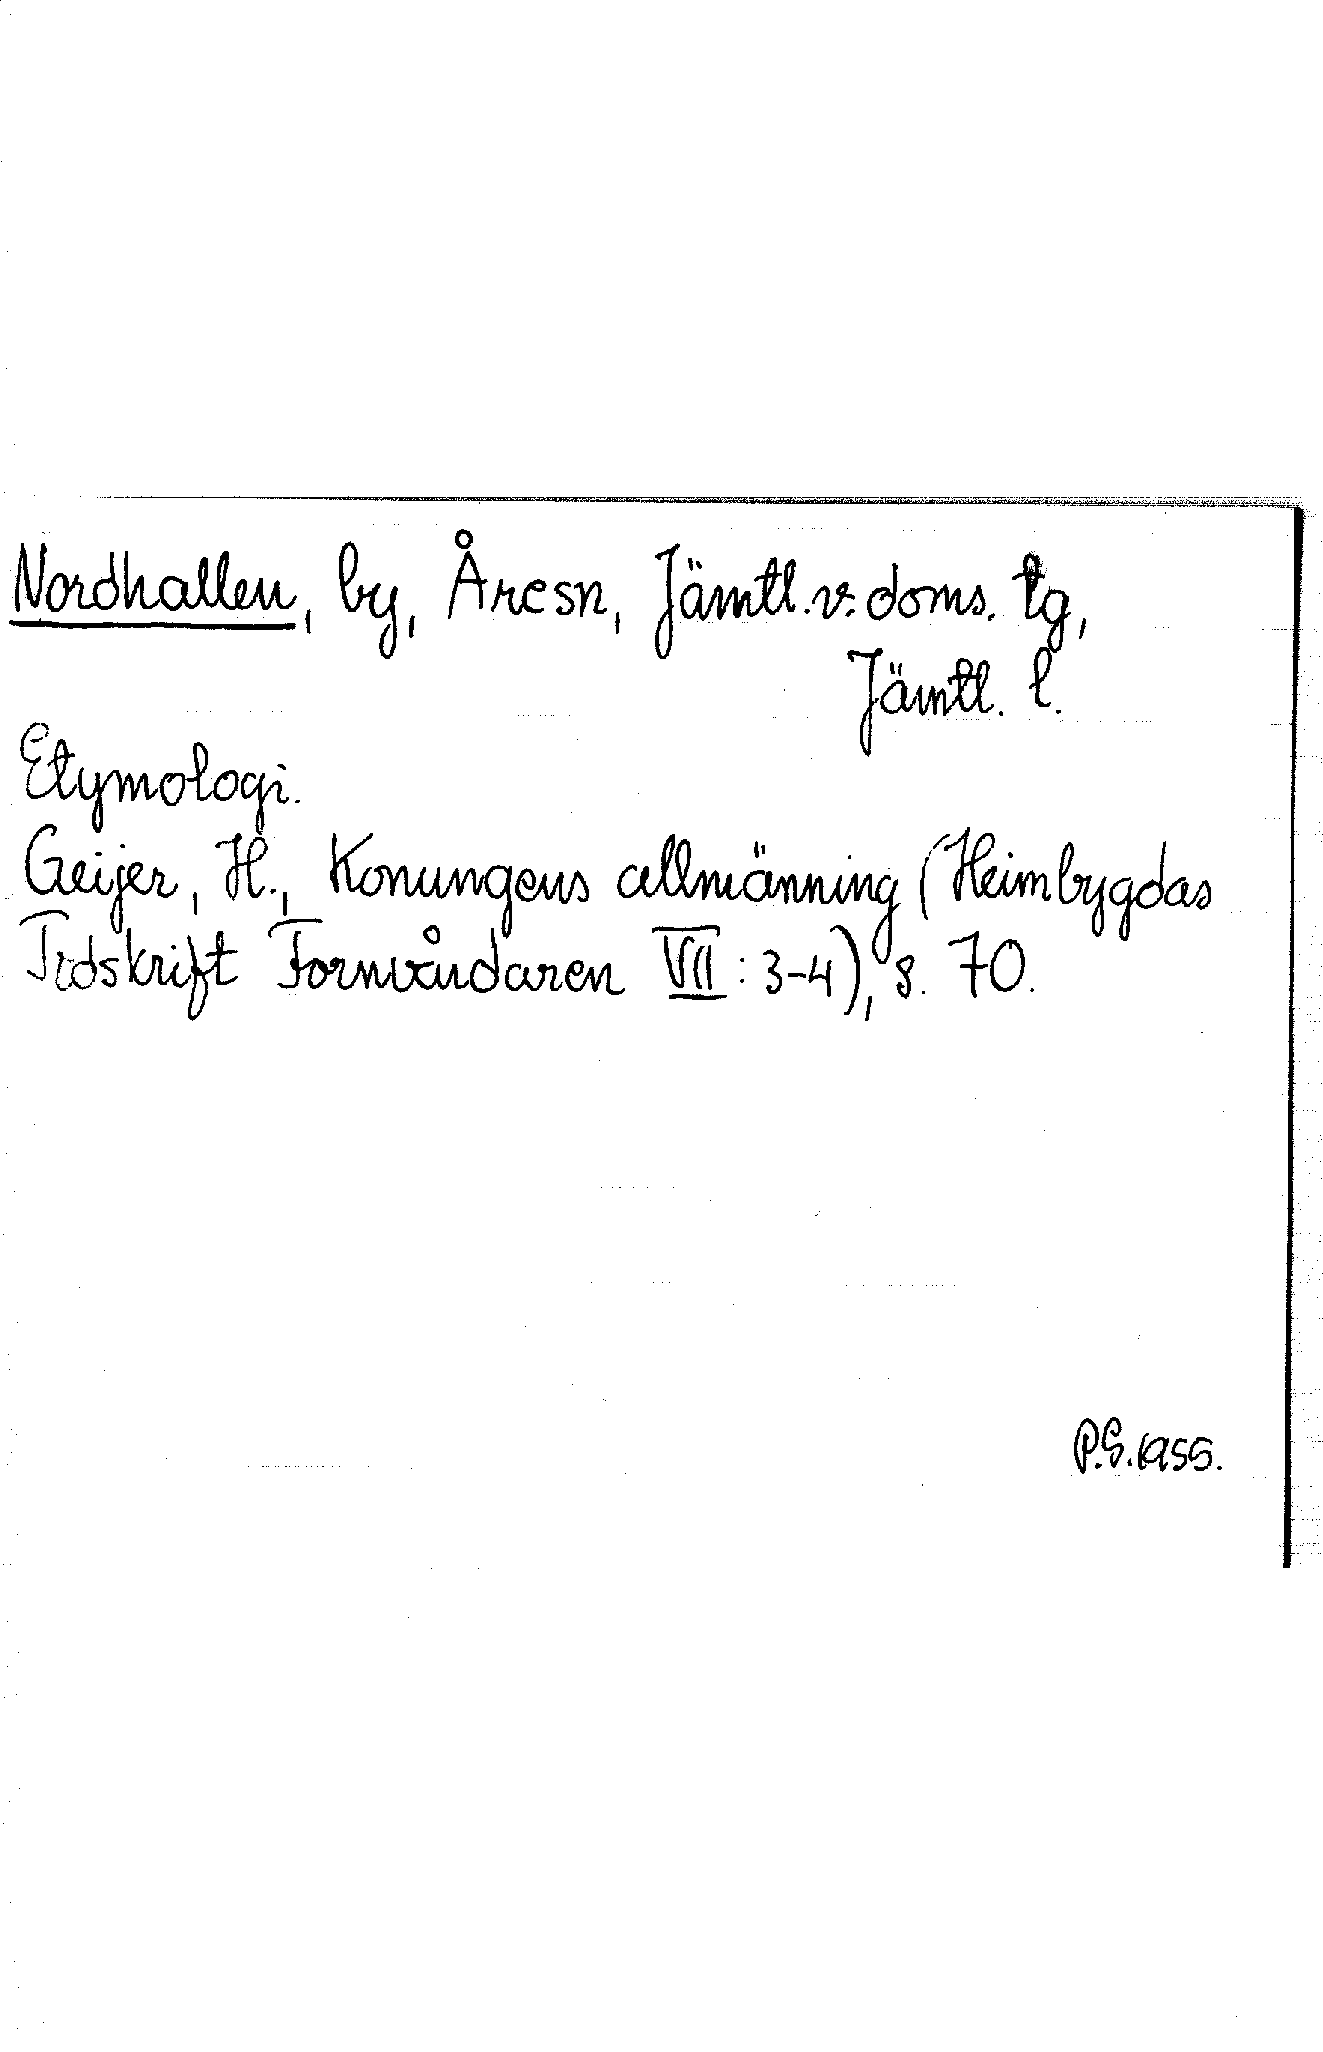 Nordhallen, by, Åre sn, Jämtl. v. doms. tg,
Jämtl. l.
Etymologi.
Geijer, H., Konungens allmänning (Heimbygdas
Tidskrift Fornvårdaren VII: 3-4), s. 70.
P.S. 1955.